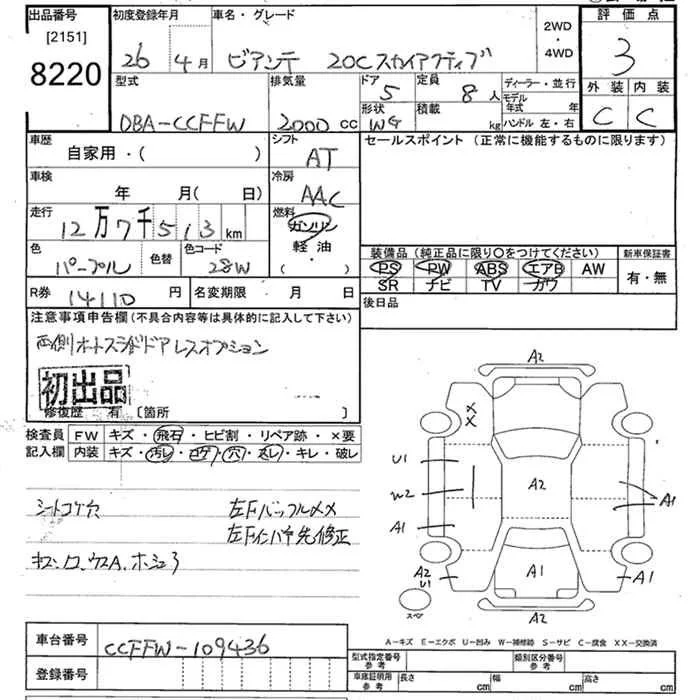 出品番号
[2151]
8220
初度登録年月
26 4月
車名・グレード
ビアンテ 20Cスカイアクティブ
2WD
・
4WD
評価点
3
外装 内装
C C
型式
DBA-CCFFW
排気量
2000 cc
ドア 5
定員 8人
形状 WG
積載 kg
ディーラー・並行
モデル年式 年
ハンドル 左・右
車歴
自家用・( )
シフト
AT
セールスポイント (正常に機能するものに限ります)
車検
年 月( 日)
冷房
AAC
走行
12万7千513km
燃料
ガソリン
軽油
( )
色
パープル
色替
色コード
28W
装備品 (純正品に限り○をつけてください)
PS PW ABS エアB AW
SR ナビ TV カワ
新車保証書
有・無
R券 14110円
名変期限 月 日
後日品
注意事項申告欄 (不具合内容等は具体的に記入して下さい)
両側オートスライドドアレスオプション
初出品
修復歴 有 [箇所 ]
検査員
記入欄
FW キズ・飛石・ヒビ割・リペア跡・×要
内装 キズ・汚レ・コゲ・穴・スレ・キレ・破レ
シートコゲ穴
左Fバッフルメメ
左Fインパネ先修正
A2
X
X
U1
W2
A1
A2
A1
A2
U1
A1
A1
スペア
A2
A-キズ E-エクボ U-凹み W-補修跡 S-サビ C-腐食 XX-交換済
車台番号
CCFFW-109436
登録番号
型式指定番号
参考
類別区分番号
参考
車庫証明用
参考
長さ cm
幅 cm
高さ cm